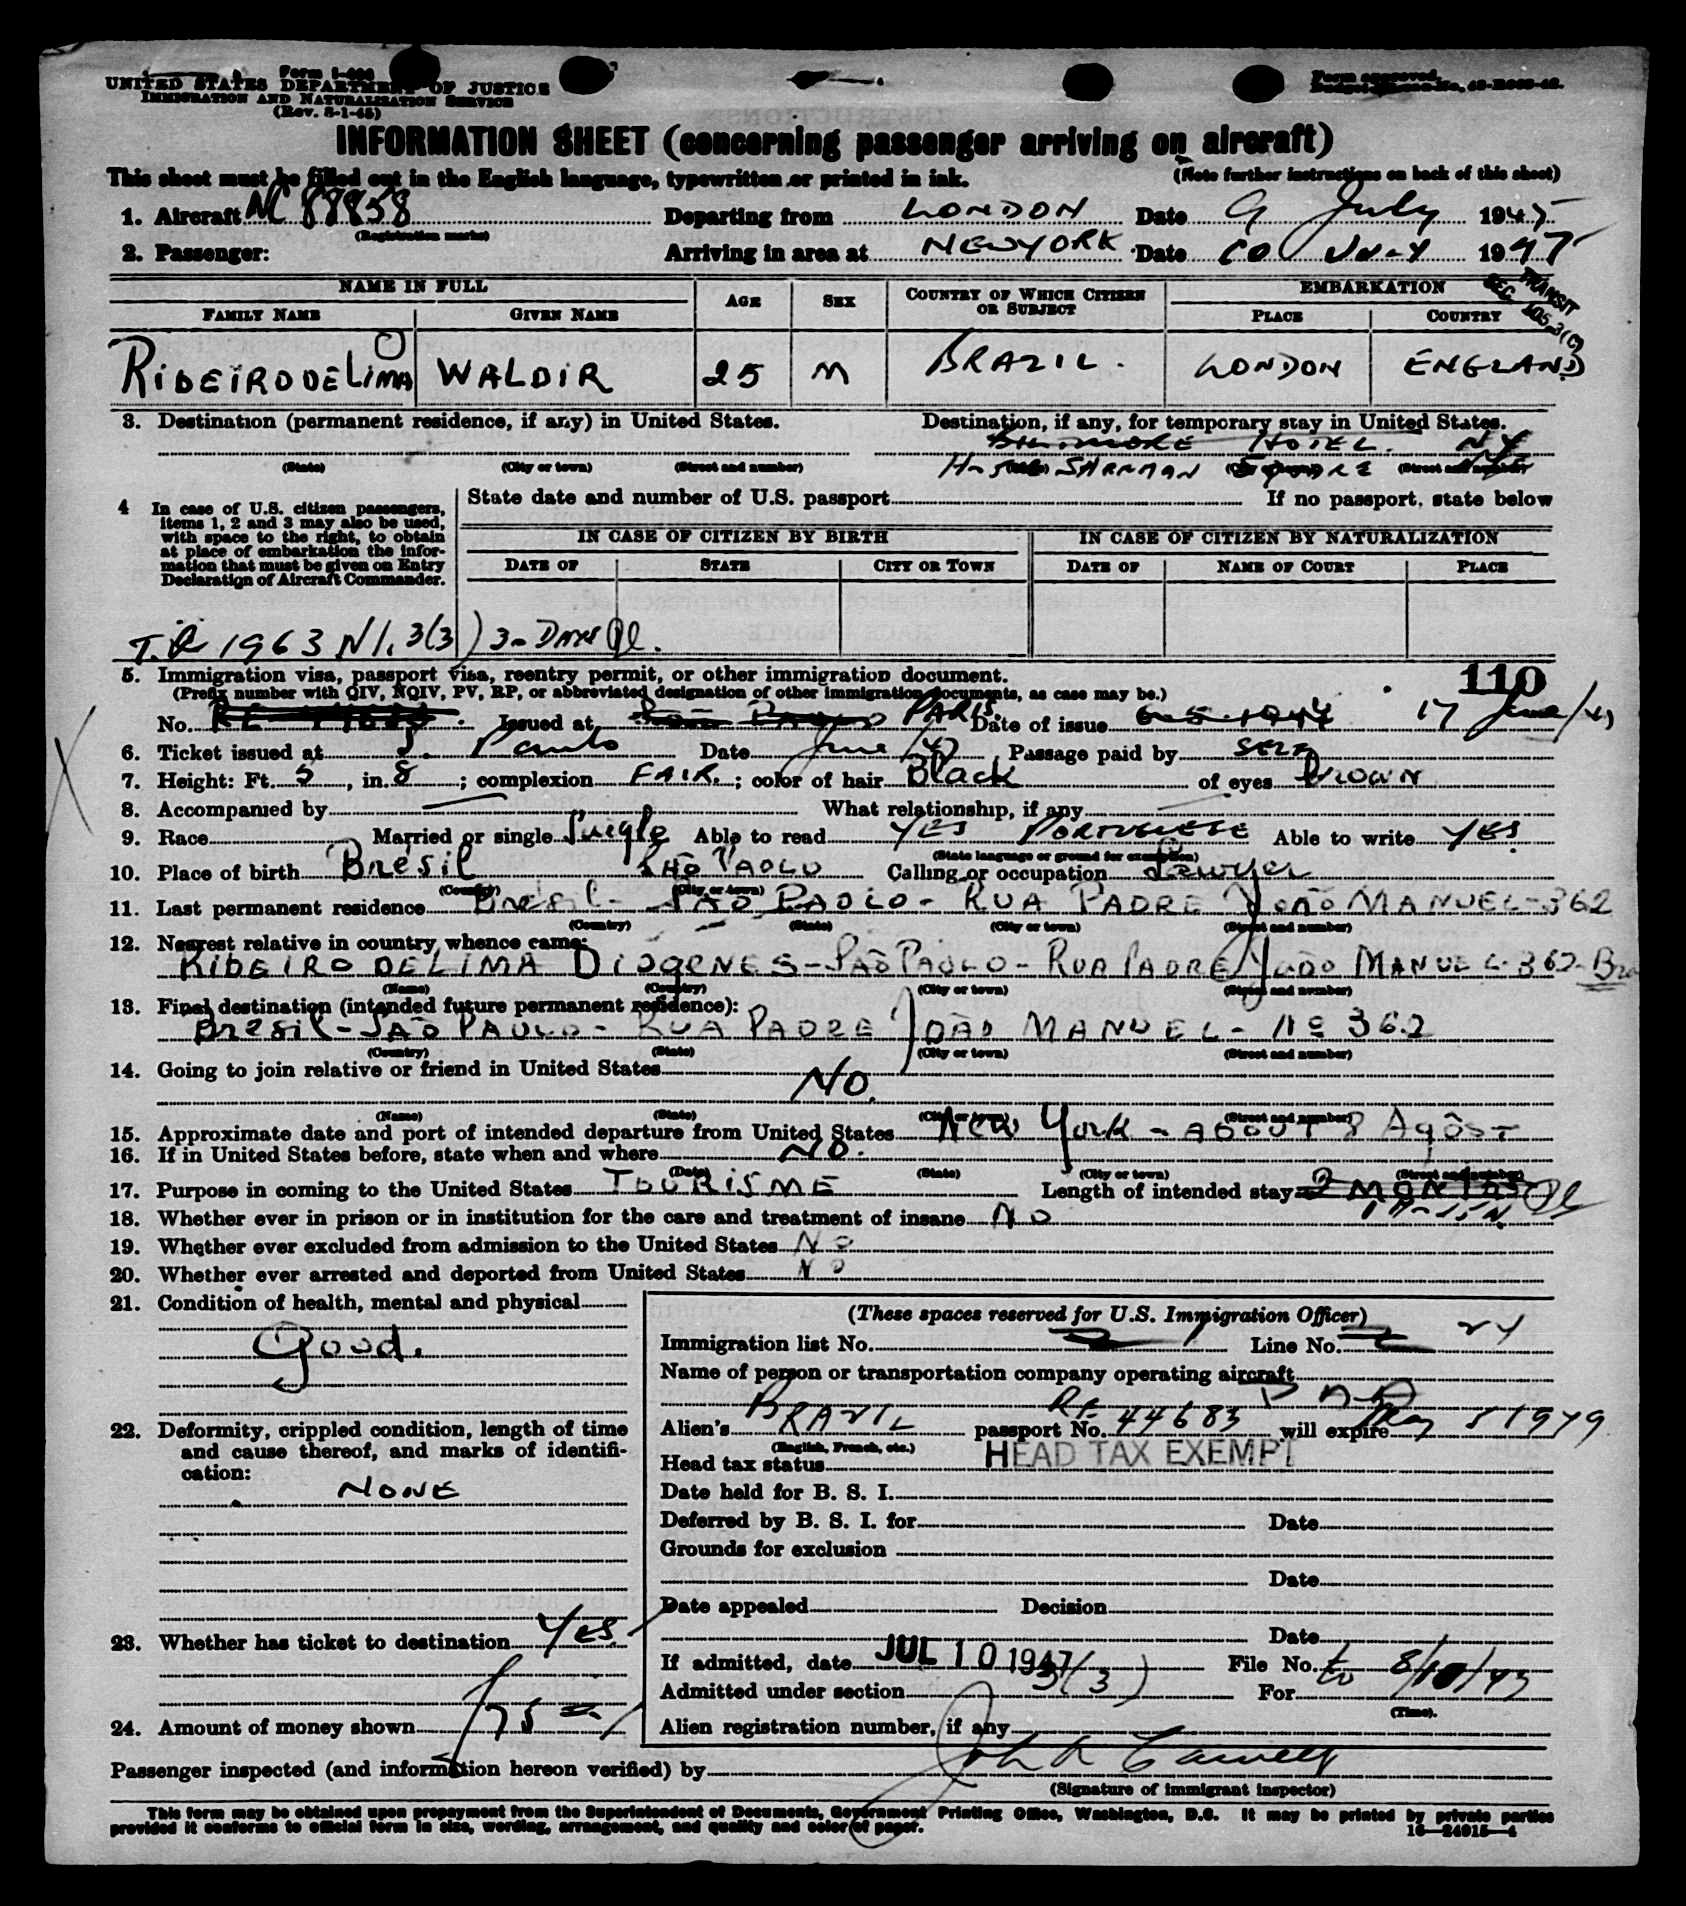 Form I-466
UNITED STATES DEPARTMENT OF JUSTICE
IMMIGRATION AND NATURALIZATION SERVICE
(Rev. 3-1-45)
Form approved.
INFORMATION SHEET (concerning passenger arriving on aircraft)
This sheet must be filled out in the English language, typewritten or printed in ink. (Note further instructions on back of this sheet)
1. Aircraft NC 88858 Departing from LONDON Date 9 July 1947
(Registration marks)
2. Passenger: Arriving in area at NEW YORK Date 10 JULY 1947
TRANSIT
SEC. 105.3(C)
NAME IN FULL AGE SEX COUNTRY OF WHICH CITIZEN OR SUBJECT EMBARKATION
FAMILY NAME GIVEN NAME PLACE COUNTRY
RIBEIRO DE LIMA WALDIR 25 M BRAZIL. LONDON ENGLAND
3. Destination (permanent residence, if any) in United States. Destination, if any, for temporary stay in United States.
BILTMORE HOTEL. NY
(State) (City or town) (Street and number) SHARMAN SQUARE (Street and number)
4 In case of U.S. citizen passengers, items 1, 2 and 3 may also be used, with space to the right, to obtain at place of embarkation the information that must be given on Entry Declaration of Aircraft Commander.
State date and number of U.S. passport If no passport, state below
IN CASE OF CITIZEN BY BIRTH IN CASE OF CITIZEN BY NATURALIZATION
DATE OF STATE CITY OR TOWN DATE OF NAME OF COURT PLACE
T.R 1963 N/. 3(3) 3- DAYS
5. Immigration visa, passport visa, reentry permit, or other immigration document. 110
(Prefix number with QIV, NQIV, PV, RP, or abbreviated designation of other immigration documents, as case may be.)
No. Issued at PARIS. Date of issue 17 June/47
6. Ticket issued at S. Paulo Date June/47 Passage paid by SELF
7. Height: Ft. 5, in. 8; complexion FAIR.; color of hair Black of eyes Brown
8. Accompanied by What relationship, if any
9. Race Married or single Single Able to read YES PORTUGUESE Able to write YES.
(State language or ground for exemption)
10. Place of birth Bresil SÃO PAOLO Calling or occupation Lawyer
(Country) (City or town)
11. Last permanent residence Bresil - SÃO PAOLO - RUA PADRE JOÃO MANUEL - 362
(Country) (State) (City or town) (Street and number)
12. Nearest relative in country whence came:
RIBEIRO DE LIMA DIOGENES - SÃO PAULO - RUA PADRE JOÃO MANUEL - 362 - Bra
(Name) (Country) (City or town) (Street and number)
13. Final destination (intended future permanent residence):
Bresil - SÃO PAULO - RUA PADRE JOÃO MANUEL - nº 362
(Country) (State) (City or town) (Street and number)
14. Going to join relative or friend in United States
NO.
(Name) (State) (City or town) (Street and number)
15. Approximate date and port of intended departure from United States New York - ABOUT 8 Agôst
16. If in United States before, state when and where NO.
(Date) (State) (City or town) (Street and number)
17. Purpose in coming to the United States TOURISME Length of intended stay 2 MONTHS
18. Whether ever in prison or in institution for the care and treatment of insane NO
19. Whether ever excluded from admission to the United States NO
20. Whether ever arrested and deported from United States NO
21. Condition of health, mental and physical
Good.
22. Deformity, crippled condition, length of time and cause thereof, and marks of identification:
NONE
23. Whether has ticket to destination Yes.
24. Amount of money shown
(These spaces reserved for U.S. Immigration Officer)
Immigration list No. Line No. 24
Name of person or transportation company operating aircraft
P A A
Alien's BRAZIL passport No. RE 44683 will expire May 5 1949
(English, French, etc.)
Head tax status HEAD TAX EXEMPT
Date held for B. S. I.
Deferred by B. S. I. for Date
Grounds for exclusion
Date
Date appealed Decision
Date
If admitted, date JUL 10 1947 File No.
Admitted under section 3(3) For to 8/10/47
(Time).
Alien registration number, if any
Passenger inspected (and information hereon verified) by
(Signature of immigrant inspector)
This form may be obtained upon prepayment from the Superintendent of Documents, Government Printing Office, Washington, D.C. It may be printed by private parties
provided it conforms to official form in size, wording, arrangement, and quality and color of paper.
16—24915—4